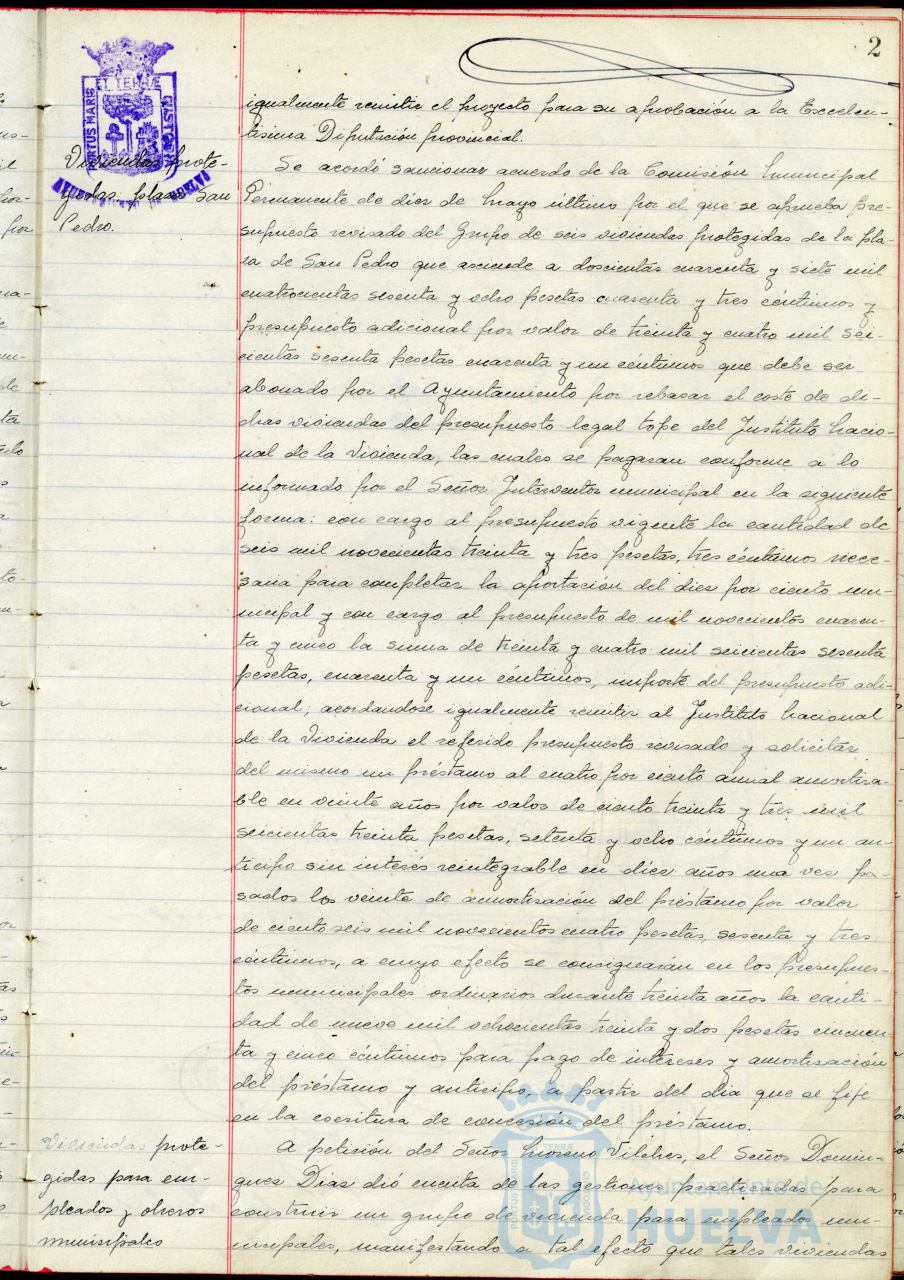 2
PORTUS MARIS ET TERRAE CUSTODIA
igualmente remitir el proyecto para su aprobación a la Excelen-
tisima Diputación provincial.
Viviendas prote-
gidas plaza San
Pedro.
Se acordó sancionar acuerdo de la Comisión Municipal
Permanente de diez de Mayo último por el que se aprueba pre-
supuesto revisado del Grupo de seis viviendas protegidas de la pla-
za de San Pedro que asciende a doscientas cuarenta y siete mil
cuatrocientas sesenta y ocho pesetas cuarenta y tres céntimos y
presupuesto adicional por valor de treinta y cuatro mil sei-
cientas sesenta pesetas cuarenta y un céntimos que debe ser
abonado por el Ayuntamiento por rebasar el coste de di-
chas viviendas del presupuesto legal tope del Instituto Nacio-
nal de la Vivienda, las cuales se pagaran conforme a lo
informado por el Señor Interventor municipal en la siguiente
forma: con cargo al presupuesto vigente la cantidad de
seis mil novecientas treinta y tres pesetas, tres céntimos nece-
saria para completar la aportación del diez por ciento mu-
nicipal y con cargo al presupuesto de mil novecientos cuaren-
ta y cinco la suma de treinta y cuatro mil seicientas sesenta
pesetas, cuarenta y un céntimos, importe del presupuesto adi-
cional; acordandose igualmente remitir al Instituto Nacional
de la Vivienda el referido presupuesto revisado y solicitar
del mismo un préstamo al cuatro por ciento anual amortiza-
ble en veinte años por valor de ciento treinta y tres mil
seicientas treinta pesetas, setenta y ocho céntimos y un an-
ticipo sin interés reintegrable en diez años una vez pa-
sados los veinte de amortización del préstamo por valor
de ciento seis mil novecientos cuatro pesetas, sesenta y tres
céntimos, a cuyo efecto se consignarán en los presupues-
tos municipales ordinarios durante treinta años la canti-
dad de nueve mil ochocientas treinta y dos pesetas cincuen-
ta y cinco céntimos para pago de intereses y amortización
del préstamo y anticipo, a partir del dia que se fije
en la escritura de concesión del préstamo.
Viviendas prote-
gidas para em-
pleados y obreros
municipales
A petición del Señor Moreno Vilches, el Señor Domin-
guez Diaz dió cuenta de las gestiones practicadas para
construir un grupo de vivienda para empleados mu-
nicipales, manifestando a tal efecto que tales viviendas
Ayuntamiento de
HUELVA